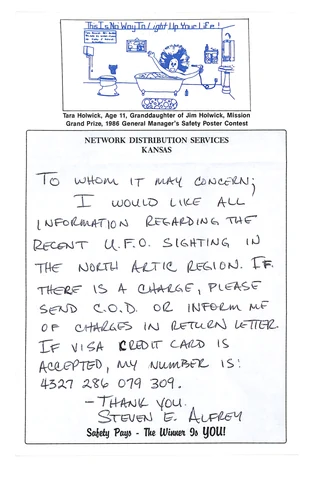 This Is No Way To Light Up Your Life!
Tara Holwick, Age 11, Granddaughter of Jim Holwick, Mission
Grand Prize, 1986 General Manager's Safety Poster Contest
NETWORK DISTRIBUTION SERVICES
KANSAS
TO WHOM IT MAY CONCERN;
I WOULD LIKE ALL
INFORMATION REGARDING THE
RECENT U.F.O. SIGHTING IN
THE NORTH ARTIC REGION. IF
THERE IS A CHARGE, PLEASE
SEND C.O.D. OR INFORM ME
OF CHARGES IN RETURN LETTER.
IF VISA CREDIT CARD IS
ACCEPTED, MY NUMBER IS:
4327 286 079 309.
- THANK YOU.
STEVEN E. ALFREY
Safety Pays - The Winner Is YOU!